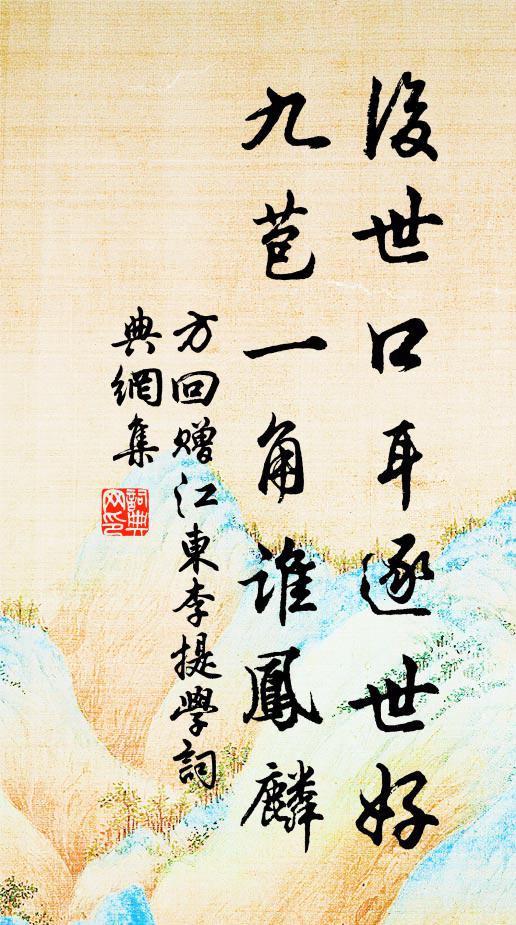 後世口耳逐世好
九苞一角誰鳳麟
方回贈江東李提學詞
典網集
詞典
網印